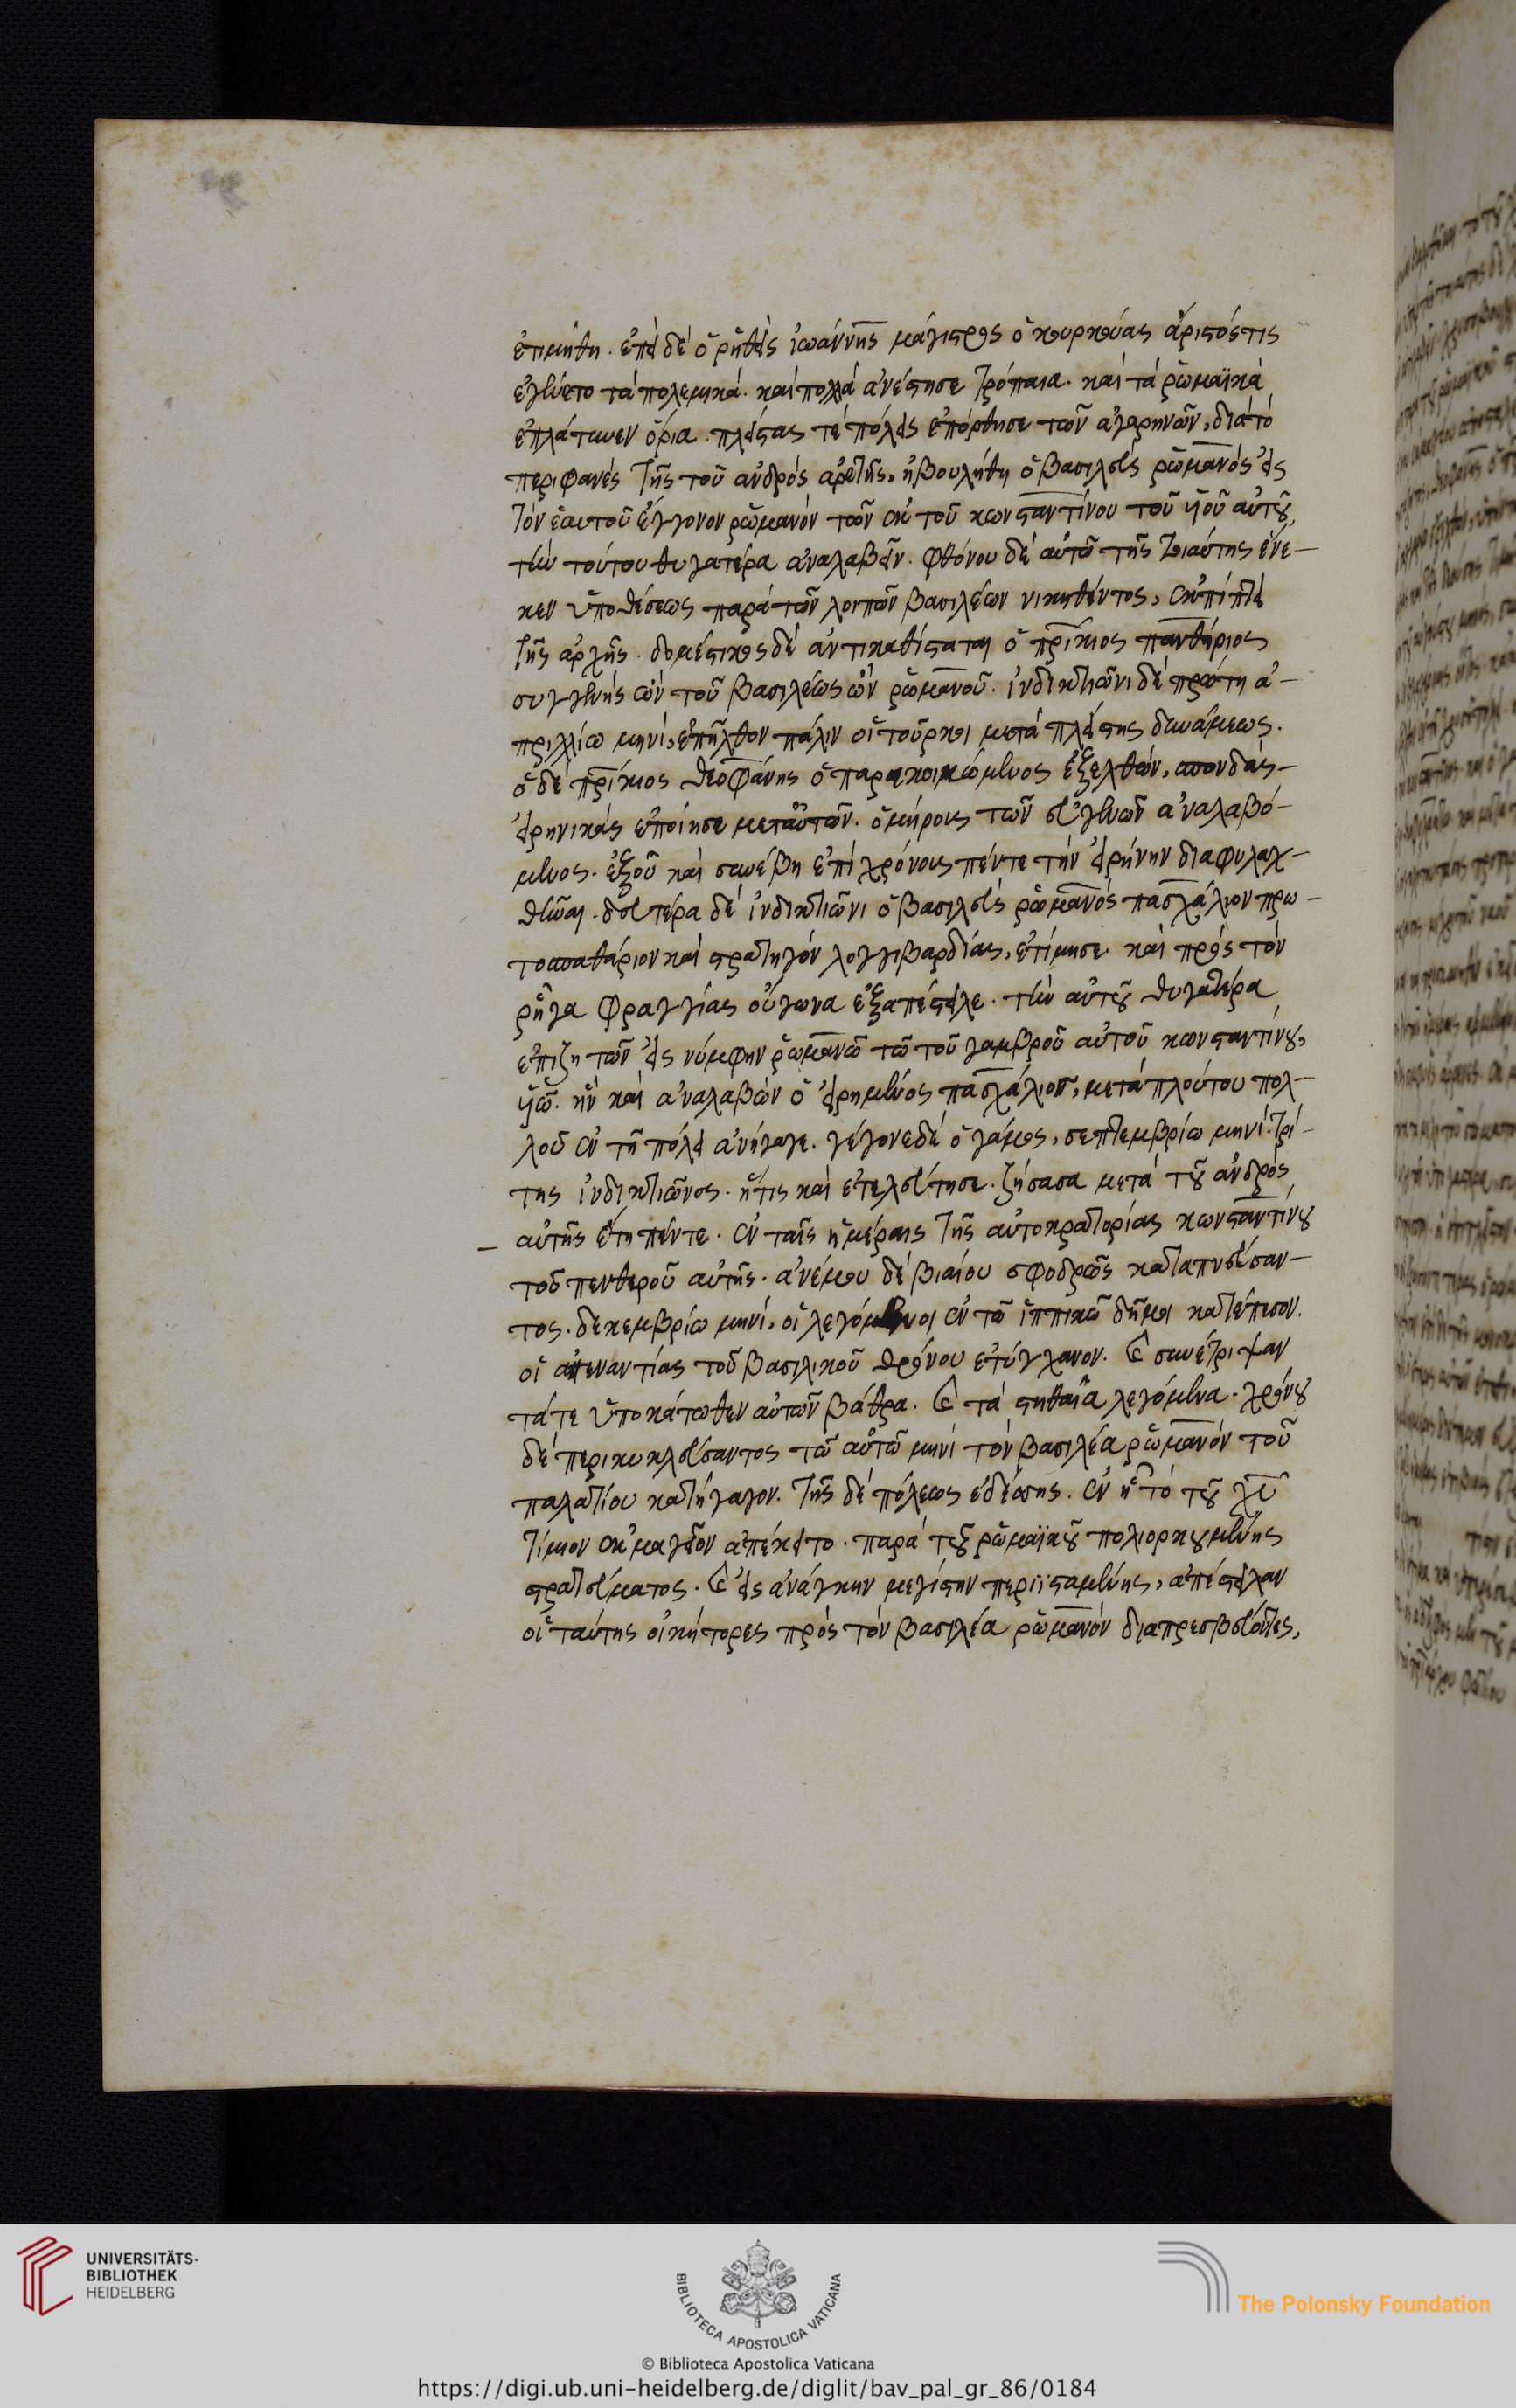 ἐτιμήθη. ἐπεὶ δὲ ὁ ῥηθεὶς ἰωάννης μάγιστρος ὁ κουρκούας ἄριστός τις
ἐγένετο τὰ πολεμικά. καὶ πολλὰ ἀνέστησε τρόπαια. καὶ τὰ ῥωμαϊκὰ
ἐπλάτυνεν ὅρια. πλείστας τὲ πόλεις ἐπόρθησε τῶν ἀγαρηνῶν, διὰ τὸ
περιφανὲς τῆς τοῦ ἀνδρὸς ἀρετῆς, ἠβουλήθη ὁ βασιλεὺς ῥωμανὸς εἰς
τὸν ἑαυτοῦ ἔγγονον ῥωμανὸν τὸν ἐκ τοῦ κωνσταντίνου τοῦ υἱοῦ αὐτοῦ,
τὴν τούτου θυγατέρα ἀναλαβεῖν. φθόνου δὲ αὐτῶ τῆς τοιαύτης ἕνε-
κεν ὑποθέσεως παρὰ τῶν λοιπῶν βασιλέων νικηθέντος, ἐκπίπτει
τῆς ἀρχῆς. δομέστικος δὲ ἀντικαθίσταται ὁ πρίκιος πανθήριος
συγγενὴς ὢν τοῦ βασιλέως ὢν ῥωμανοῦ. ἰνδικτιῶνι δὲ πρώτη ἀ-
πριλλίω μηνί, ἐπῆλθον πάλιν οἱ τοῦρκοι μετὰ πλείστης δυνάμεως.
ὁ δὲ πρίκιος θεοφάνης ὁ παρακοιμώμενος ἐξελθών, σπονδὰς
εἰρηνικὰς ἐποίησε μετ' αὐτῶν. ὁμήρους τῶν εὐγενῶν ἀναλαβό-
μενος. ἐξ οὗ καὶ συνέβη ἐπὶ χρόνους πέντε τὴν εἰρήνην διαφυλαχ-
θῆναι. δευτέρα δὲ ἰνδικτιῶνι ὁ βασιλεὺς ῥωμανὸς πασχάλιον πρω-
τοσπαθάριον καὶ στρατηγὸν λογγιβαρδίας, ἐτίμησε. καὶ πρὸς τὸν
ῥῆγα φραγγίας οὔγωνα ἐξαπέστειλε. τὴν αὐτοῦ θυγατέρα
ἐπιζητῶν εἰς νύμφην ῥωμανῶ τῶ τοῦ γαμβροῦ αὐτοῦ κωνσταντίνου,
υἱῶ. ἣν καὶ ἀναλαβὼν ὁ εἰρημένος πασχάλιος, μετὰ πλούτου πολ-
λοῦ ἐν τῆ πόλει ἀνήγαγε. γέγονε δὲ ὁ γάμος, σεπτεμβρίω μηνὶ. τρί-
της ἰνδικτιῶνος. ἥτις καὶ ἐτελεύτησε. ζήσασα μετὰ τοῦ ἀνδρὸς
αὐτῆς ἔτη πέντε. ἐν ταῖς ἡμέραις τῆς αὐτοκρατορίας κωνσταντίνου
τοῦ πενθεροῦ αὐτῆς. ἀνέμου δὲ βιαίου σφοδρῶς καταπνεύσαν-
τος. δεκεμβρίω μηνί, οἱ λεγόμενοι ἐν τῶ ἱππικῶ δῆμοι κατέπεσον.
οἱ ἀπεναντίας τοῦ βασιλικοῦ θρόνου ἐτύγχανον. καὶ συνέτριψαν
τά τε ὑποκάτωθεν αὐτῶν βάθρα. καὶ τὰ στηθαῖα λεγόμενα. χρόνου
δὲ περικυκλεύσαντος τῶ αὐτῶ μηνὶ τὸν βασιλέα ῥωμανὸν τοῦ
παλατίου κατήγαγον. τῆς δὲ πόλεως ἐδέσσης. ἐν ἧ τὸ τοῦ χυ
τίμιον ἐκμαγεῖον ἀπέκειτο. παρὰ τοῦ ῥωμαϊκοῦ πολιορκουμένης
στρατεύματος. καὶ εἰς ἀνάγκην μεγίστην περιϊσταμένης, ἀπέστειλαν
οἱ ταύτης οἰκήτορες πρὸς τὸν βασιλέα ῥωμανὸν διαπρεσβεύοντες,
UNIVERSITÄTS-
BIBLIOTHEK
HEIDELBERG
BIBLIOTECA APOSTOLICA VATICANA
The Polonsky Foundation
© Biblioteca Apostolica Vaticana
https://digi.ub.uni-heidelberg.de/diglit/bav_pal_gr_86/0184